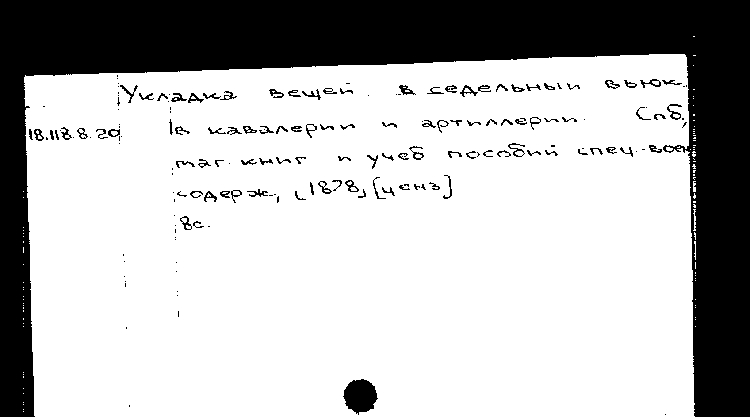 Укладка вещей в седельный вьюк
18.118.8.20 в кавалерии и артиллерии. Спб,
маг. книг и учеб пособий спец. воен
содерж, [1878] [ценз]
8с.